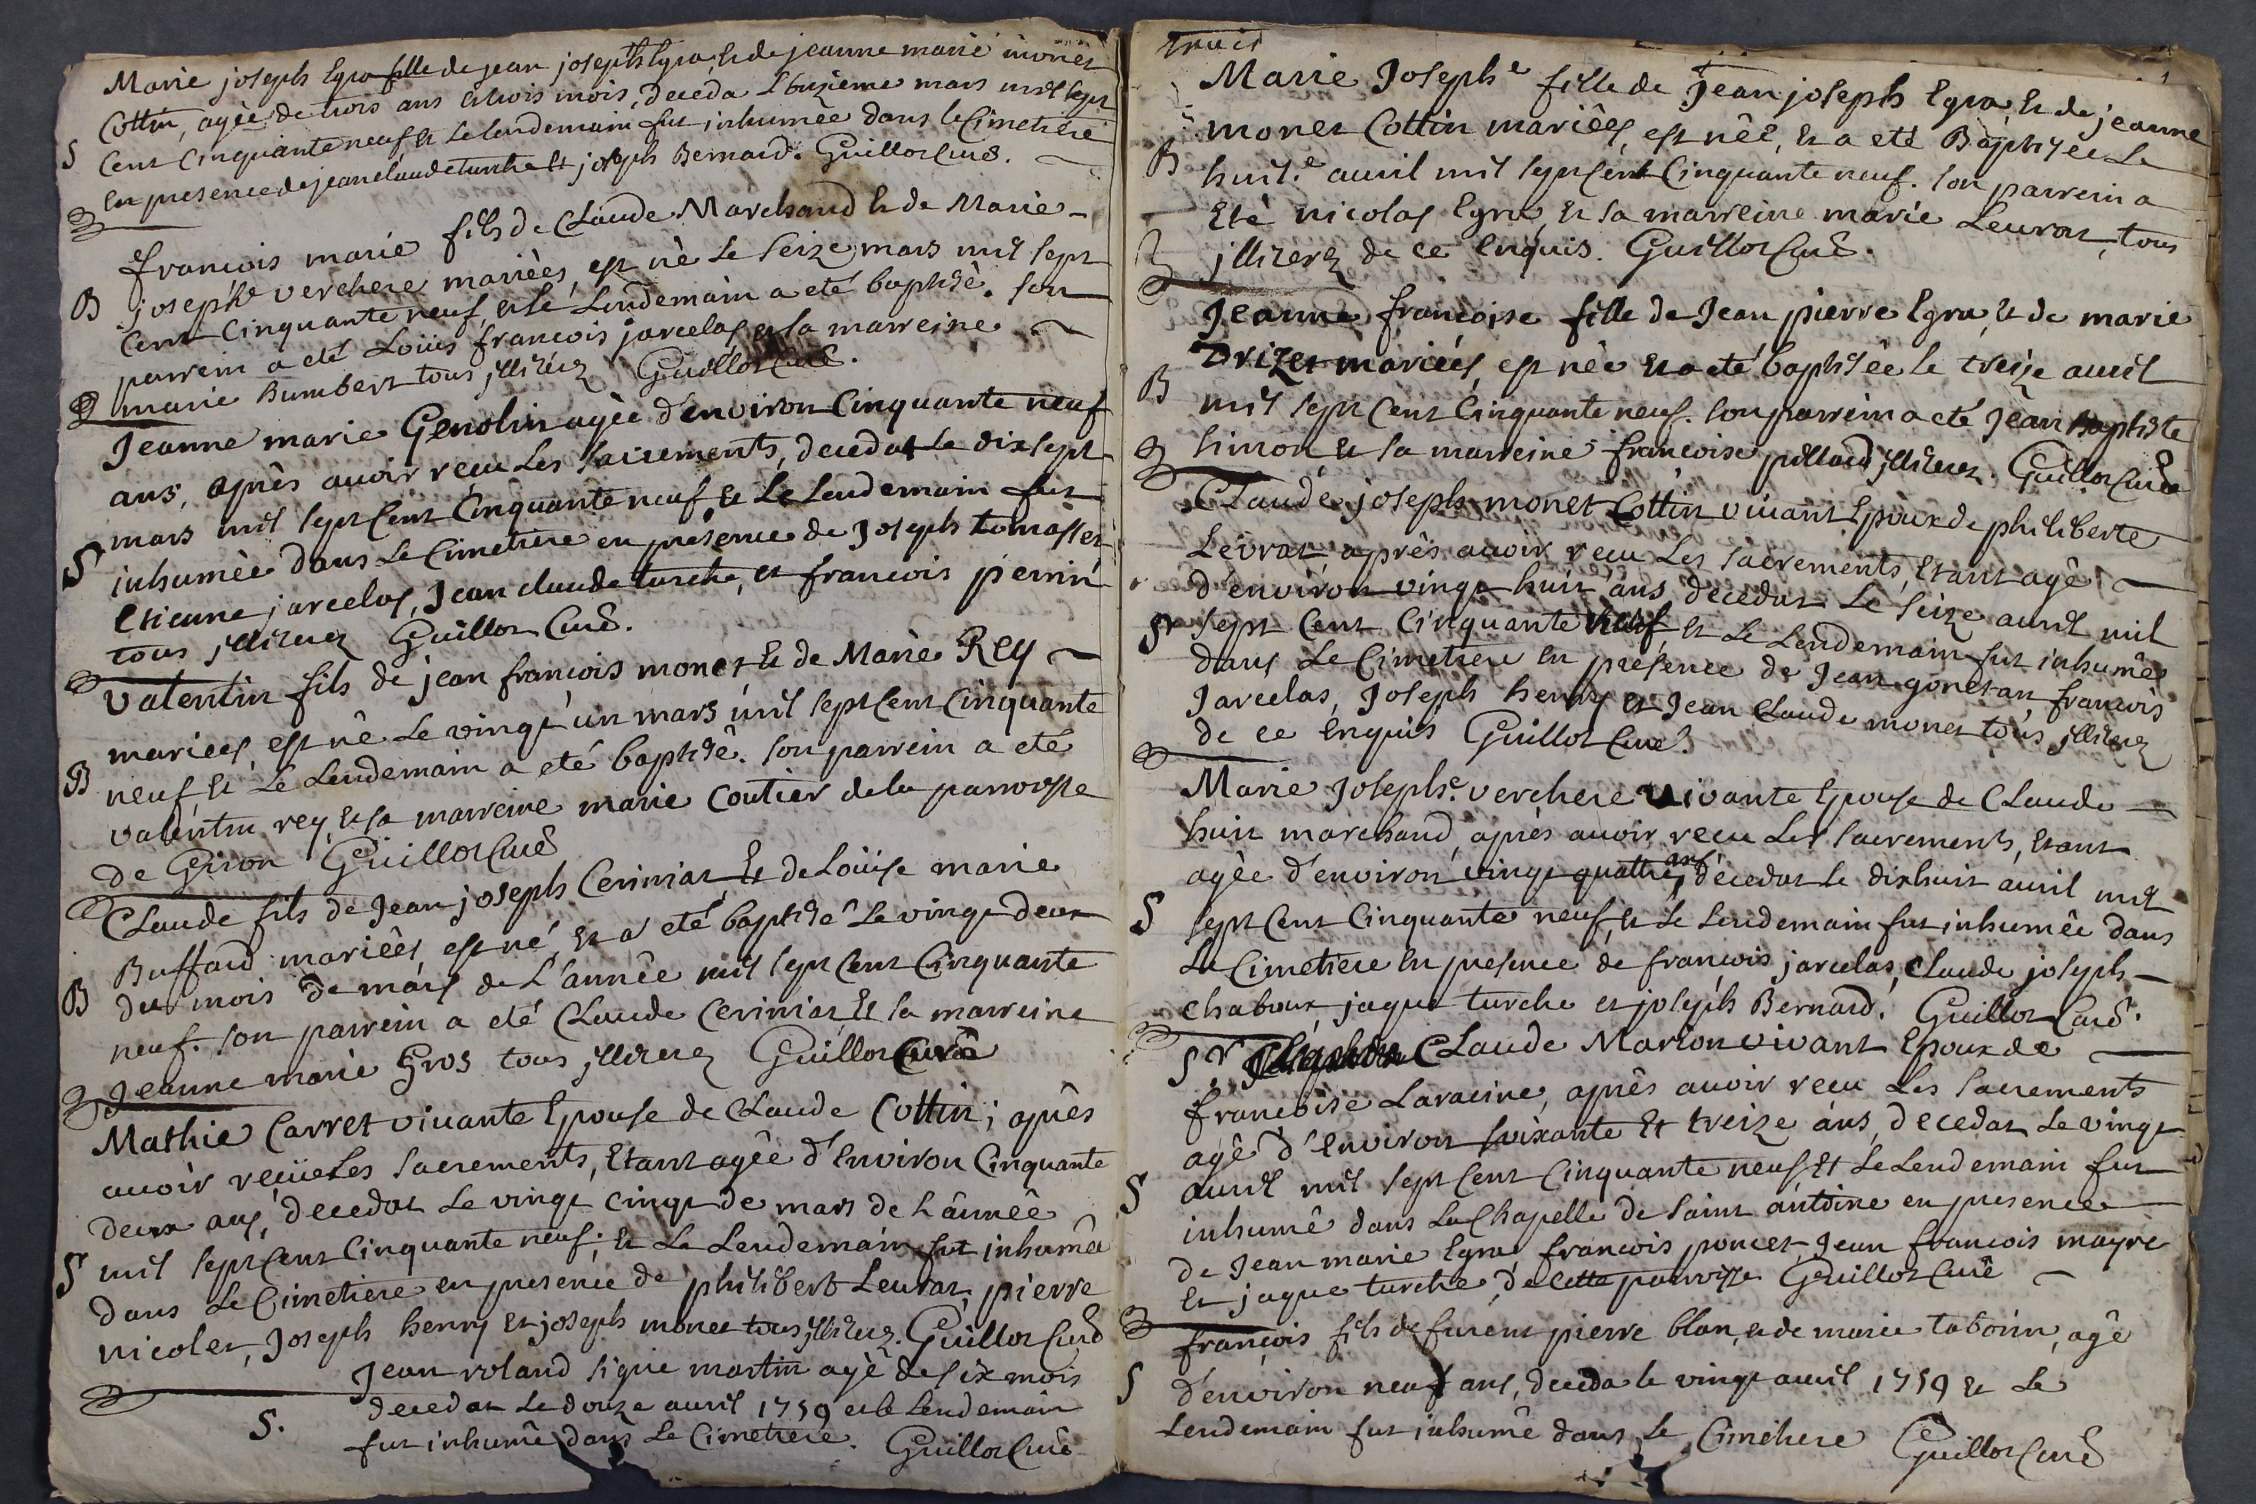 Marie joseph Egra fille de jean joseph Egra, et de jeanne marie monet
Cottin, agèe de trois ans et trois mois, deceda L'onzieme mars mil sept
S
Cent Cinquante neuf et Le lendemain fut inhumèe dans le Cimetiere
en presence de jean claude turche et joseph Bernard. Guillot Curé.
francois marie fils de Claude Marchand et de Marie
josephe verchere marièes, est nè Le seize mars mil sept
B
Cent Cinquante neuf, et le Lendemain a eté baptisè. son
parrein a eté Loüis francois jarcelas, et sa marreine
marie humbert tous illiterez Guillot Curé.
Jeanne marie Genolin agèe d'environ Cinquante neuf
ans, après avoir recu Les sacrements, decedat Le dix sept
mars mil sept Cent Cinquante neuf, et Le Lendemain fut
S
inhumèe dans Le Cimetiere en presence de Joseph tomasset
etienne jarcelas, Jean claude turche, et francois perrin
tous illiterez Guillot Curé.
Valentin fils de jean francois monet et de Marie Rey
mariees, est né Le vingt un mars mil sept Cent Cinquante
B
neuf, et Le Lendemain a eté baptisé. son parrein a eté
valentin rey, et sa marreine marie Coutier de la parroisse
de Giron Guillot Curé
Claude fils de Jean joseph Ceriniat, et de Loüise marie
Buffard mariées, est né, et a eté baptisé Le vingt deux
B
du mois de mars de L'année mil sept Cent Cinquante
neuf. son parrein a eté Claude Ceriniat, et sa marreine
Jeanne marie Gros tous illiterez Guillot Curé
Mathie Carret vivante Epouse de Claude Cottin; après
avoir reçüe Les sacrements, Etant agée d'environ Cinquante
deux ans, decedat Le vingt cinqt de mars de L'année
S
mil sept Cent Cinquante neuf; et Le Lendemain fut inhumée
dans Le Cimetiere en presence de philibert Levrat, pierre
nicolet, Joseph henry et joseph monet tous illiterez. Guillot Curé
Jean roland signe martin agè de six mois
decedat Le douze avril 1759 et le Lendemain
S.
fut inhumé dans Le Cimetiere. Guillot Curé
Marie Josephe fille de Jean joseph Egra et de jeanne
monet Cottin mariées, est née, et a eté Baptisée Le
B
huite avril mil sept Cent Cinquante neuf. son parrein a
Eté nicolas Egra, et sa marreine marie Levrat, tous
illiterez de ce Enquis. Guillot Curé.
Jeanne francoise fille de Jean pierre Egra, et de marie
Drizet mariées, est née et a eté baptisée le treize avril
B
mil sept Cent Cinquante neuf. son parrein a eté Jean Baptiste
simon, et sa marreine francoise pillard illiterez. Guillot Curé
Claude joseph monet Cottin vivant Epoux de philiberte
Levrat, après avoir recu Les sacrements, Etant agé
d'environ vingt huit ans decedat Le seize avril mil
S
sept Cent Cinquante neuf et Le Lendemain fut inhumée
dans Le Cimetiere en presence de Jean gonetan, francois
Jarcelas, Joseph henry et Jean Claude monet tous illiterez
de ce Enquis Guillot Curé.
Marie Josephe verchere vivante Epouse de Claude
huit marchand, après avoir recu Les sacrements, Etant
agée d'environ vingt quattre ans, decedat le dixhuit avril mil
S
sept Cent Cinquante neuf, et Le Lendemain fut inhumée dans
Le Cimetiere en presence de francois jarcelas, Claude joseph
chaboux, jaque turche et joseph Bernard. Guillot Curé.
Sr. Claude Marion vivant Epoux de
francoise Laracine, après avoir recu Les sacrements
agé d'environ soixante et treize ans, decedat Le vingt
S
avril mil sept Cent Cinquante neuf, et Le Lendemain fut
inhumé dans La Chapelle de saint antoine en presence
de Jean marie Egra, francois poncet, Jean francois mayre
et jaque turche, de cette parroisse Guillot Curé
francois fils de furent pierre blan, et de marie tabouin, agé
S
d'environ neuf ans, deceda le vingt avril 1759 et Le
Lendemain fut inhumé dans Le Cimetiere Guillot Curé